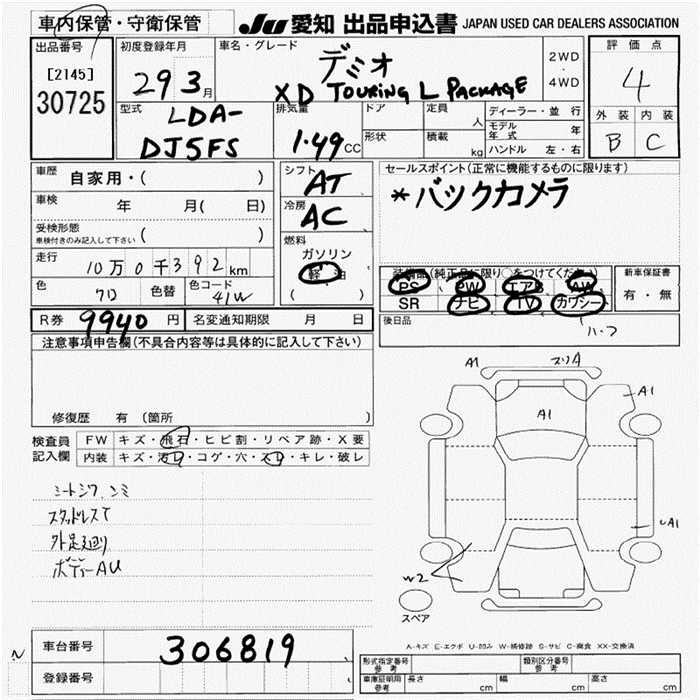 車内保管・守衛保管
JU 愛知 出品申込書 JAPAN USED CAR DEALERS ASSOCIATION
出品番号 [2145] 30725
初度登録年月 29 3月
車名・グレード デミオ
XD TOURING L PACKAGE
2WD・4WD
評価点 4
外装 B 内装 C
型式 LDA-
DJ5FS
排気量 1.49 CC
ドア
形状
定員 人
積載 kg
ディーラー・並行
モデル年式 年
ハンドル 左・右
車歴 自家用・( )
車検 年 月( 日)
受検形態 ( )
車検付きのみ記入して下さい
走行 10万0千392km
色 クロ 色替 色コード 41W
シフト AT
冷房 AC
燃料
ガソリン
軽油
( )
セールスポイント(正常に機能するものに限ります)
*バックカメラ
装備品(純正品に限り○をつけてください)
PS PW エアB AW
SR ナビ TV カワシート
新車保証書
有・無
後日品
R券 9940 円 名変通知期限 月 日
注意事項申告欄(不具合内容等は具体的に記入して下さい)
修復歴 有 (箇所
検査員記入欄
FW キズ・飛石・ヒビ割・リペア跡・X要
内装 キズ・汚レ・コゲ・穴・スレ・キレ・破レ
シートシワ、シミ
スタッドレスT
外足廻り
ボディーAU
A1
スリA
A1
A1
A1
W2
スペア
A-キズ E-エクボ U-凹み W-補修跡 S-サビ C-腐食 XX-交換済
車台番号 306819
登録番号
型式指定番号 参考
類別区分番号 参考
車庫証明用 参考 長さ cm 幅 cm 高さ cm